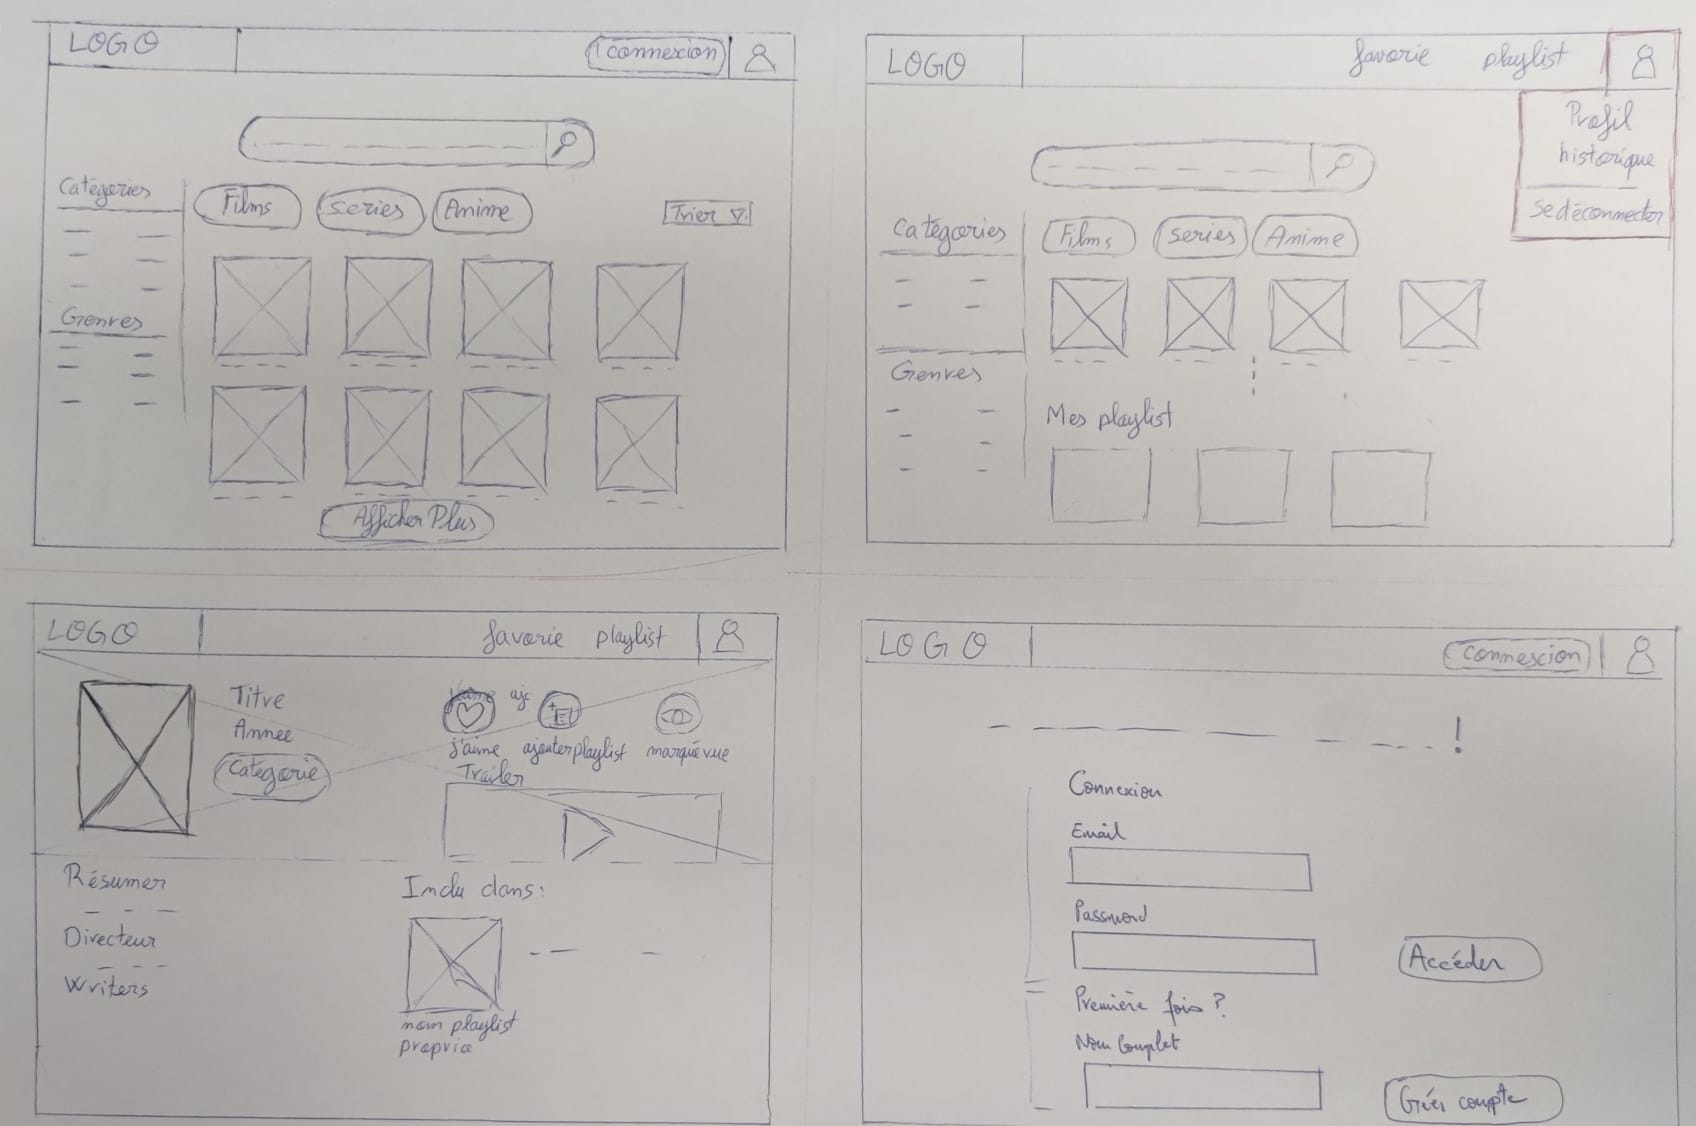 LOGO
connexcion
Catégories
Films
series
Anime
Trier
Genres
Afficher Plus
LOGO
favorie
playlist
Profil
historique
se déconnecter
Catégories
Films
series
Anime
Genres
Mes playlist
LOGO
favorie
playlist
Titre
Annee
Categorie
j'aime
ajouter playlist
marqué vue
Trailer
Résumer
Directeur
Writers
Inclu dans:
nom playlist
LOGO
connescion
!
Connexion
Email
Password
Accéder
Première fois ?
Nom Complet
Créer compte